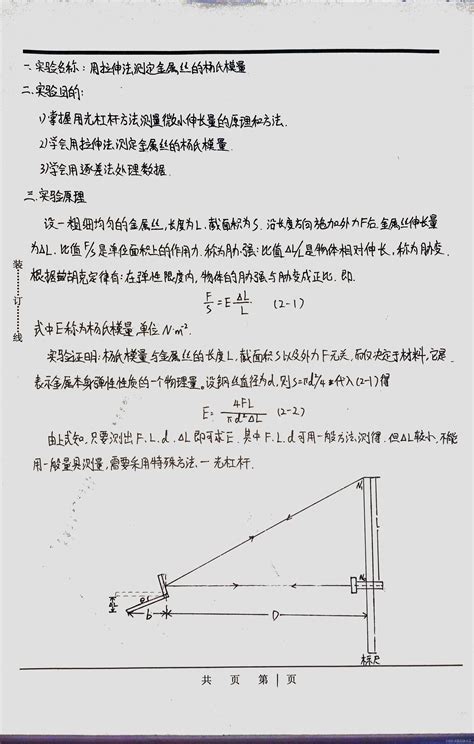 一. 实验名称: 用拉伸法测定金属丝的杨氏模量
二. 实验目的:
1) 掌握用光杠杆方法测量微小伸长量的原理和方法.
2) 学会用拉伸法测定金属丝的杨氏模量.
3) 学会用逐差法处理数据.
三. 实验原理
设一粗细均匀的金属丝, 长度为L. 截面积为S. 沿长度方向施加外力F后. 金属丝伸长量
为ΔL. 比值 F/S 是单位面积上的作用力. 称为胁强; 比值 ΔL/L 是物体相对伸长, 称为胁变.
根据胡克定律有: 在弹性限度内, 物体的胁强与胁变成正比. 即.
F/S = E ΔL/L (2-1)
式中E称为杨氏模量, 单位 N·m².
实验证明: 杨氏模量与金属丝的长度L, 截面积S以及外力F无关, 而仅决定于材料,
表示金属本身弹性性质的一个物理量. 设钢丝直径为d, 则 S=πd²/4 代入(2-1)得
E= 4FL/πd²ΔL (2-2)
由上式知, 只要测出 F. L. d. ΔL 即可求E. 其中F. L. d可用一般方法测得. 但ΔL较小, 不能
用一般量具测量, 需要采用特殊方法. — 光杠杆.
装
订
线
N₁
L
N₀
b
D
标尺
共 页 第 1 页